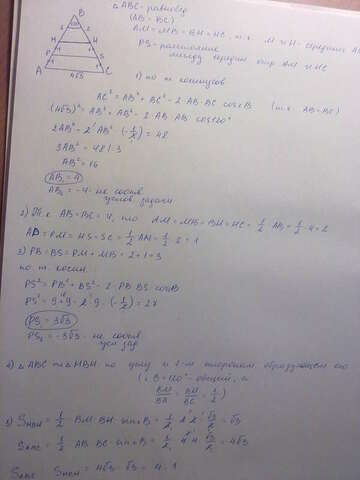 B
2 120° 2
M H
P S
A 4√3 C
△ABC - равнобед
(AB = BC)
AM = MB = BH = HC, т.к. M и H - середины
PS - расстояние
между серединами AM и HC
1) по т. косинусов
AC² = AB² + BC² - 2·AB·BC cos∠B (т.к. AB=BC)
(4√3)² = AB² + AB² - 2·AB·AB cos120°
2AB² - 2AB² (-1/2) = 48
3AB² = 48 | :3
AB² = 16
AB₁ = 4
AB₂ = -4 - не соотв
услов. задачи
2) Т.к. AB=BC=4, то AM = MB = BH = HC = 1/2 AB = 1/2·4 = 2
AP = PM = HS = SC = 1/2 AM = 1/2·2 = 1
3) PB = BS = PM + MB = 2+1 = 3
по т. косин.
PS² = PB² + BS² - 2·PB·BS·cos B
PS² = 9 + 9 - 2·9·(-1/2) = 27
PS = 3√3
PS₂ = -3√3 - не соотв
усл зад
4) △ABC ∼ △MBH по углу и 2-м сторонам, образующим его
(∠B = 120° - общий, и
BM/BA = BH/BC = 1/2)
5) S_MBH = 1/2 BM·BH·sin∠B = 1/2·2·2·√3/2 = √3
S_ABC = 1/2 AB·BC·sin∠B = 1/2·4·4·√3/2 = 4√3
S_ABC : S_MBH = 4√3 : √3 = 4:1